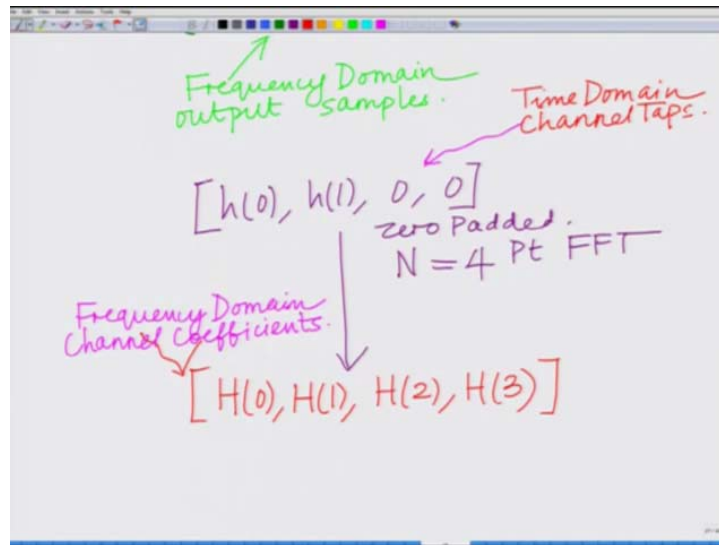 Frequency Domain
output samples.
Time Domain
Channel Taps.
[h(0), h(1), 0, 0]
zero Padded.
N = 4 Pt FFT
Frequency Domain
Channel Coefficients.
[H(0), H(1), H(2), H(3)]